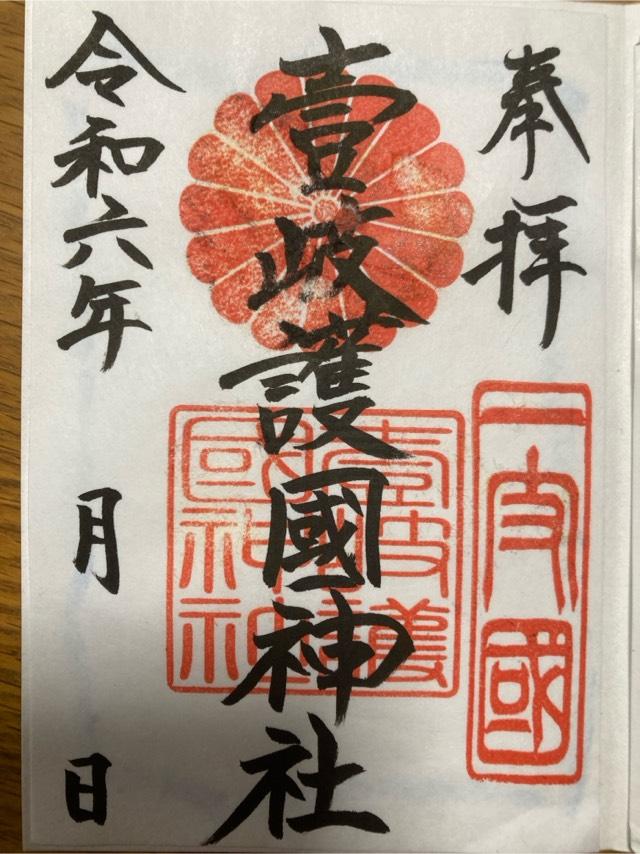 奉拝
一支國
壹岐護國神社
壹岐護國神社
令和六年 月 日